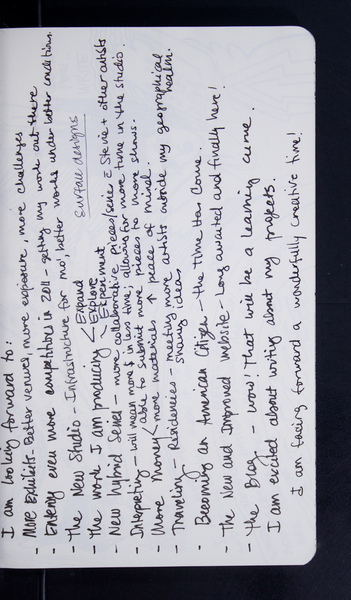 I am looking forward to:
- More Exhibits - Better venues, more exposure, more challenges
- Entering even more competitions in 2011 - getting my work out there
- The New Studio - Infrastructure for me, better works under better conditions.
- The work I am producing < Expand
Explore
Experiment
Surface designs
- New Hybrid Series - more collaborative pieces/series c̄ Stevie + other artists
- Interpreting - will mean more $ in less time; allowing for more time in the studio.
able to submit more pieces to more shows.
- More Money < more materials ↑ peace of mind.
- Traveling - Residencies - meeting more artists outside my geographical realm.
sharing ideas
- Becoming an American Citizen - the time has come.
- The New and Improved website - long awaited and finally here!
- The Blog - wow! That will be a learning curve.
I am excited about writing about my projects.
I am facing forward a wonderfully creative time!